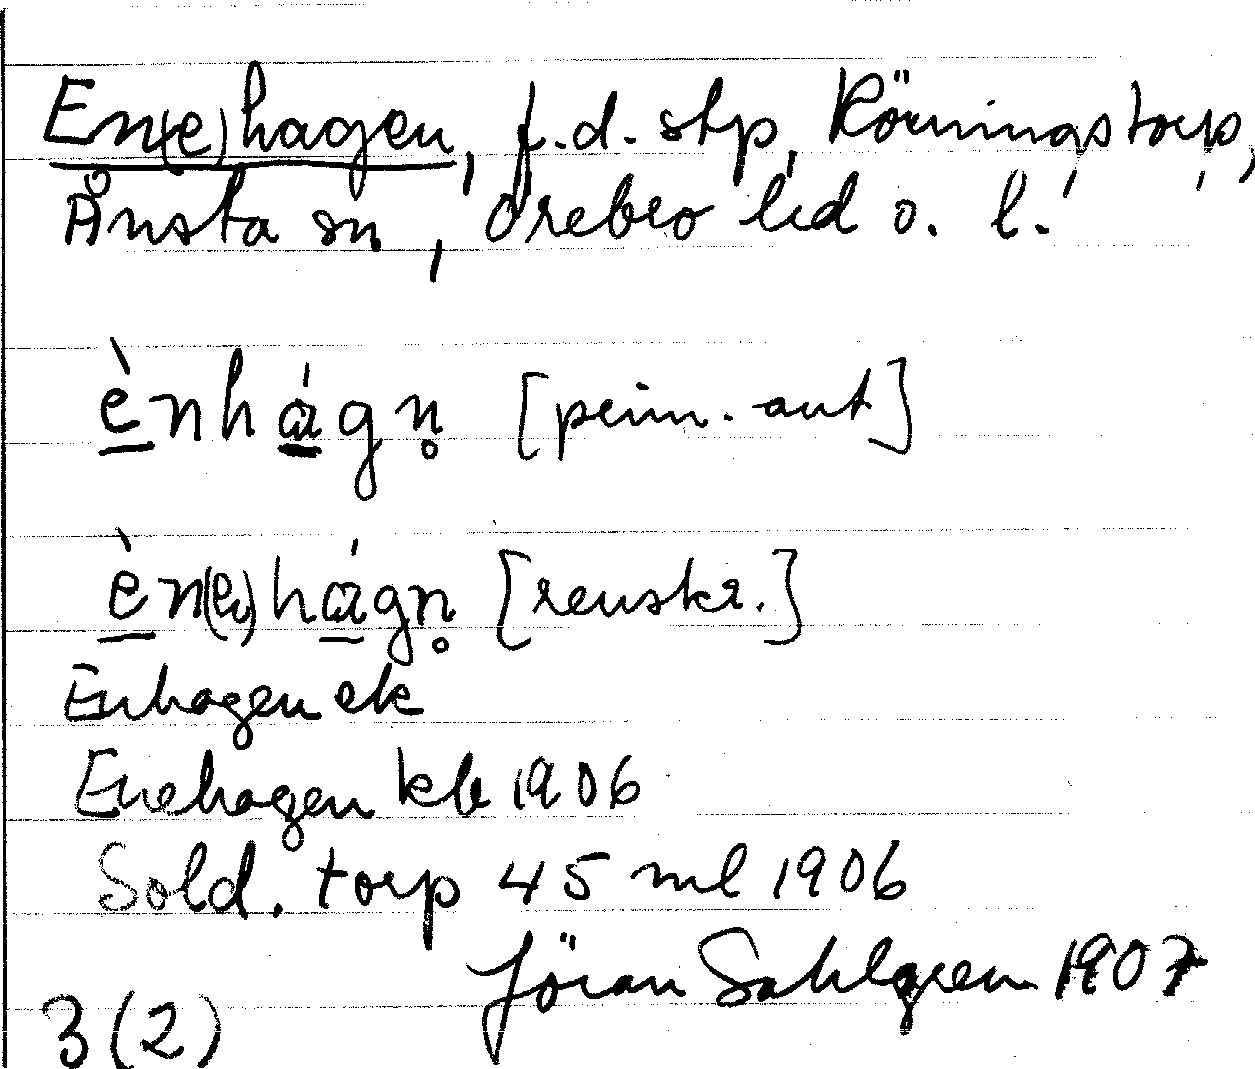 En(e)hagen, f.d. stp, Körningstorp,
Ånsta sn, Örebro lid o. l.
ènhágn̥ [prim. ant]
èn(e)hágn̥ [renskr.]
Enhagen ek
Enehagen kb 1906
Sold. torp 45 ml 1906
Jöran Sahlgren 1907
3(2)